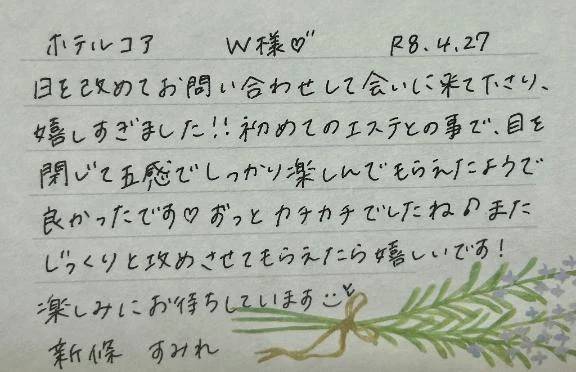 ホテルコア W様♡" R8.4.27
日を改めてお問い合わせして会いに来て下さり、
嬉しすぎました!! 初めてのエステとの事で、目を
閉じて五感でしっかり楽しんでもらえたようで
良かったです♡ ずっとカチカチでしたね♪また
じっくりと攻めさせてもらえたら嬉しいです!
楽しみにお待ちしています
新條 すみれ